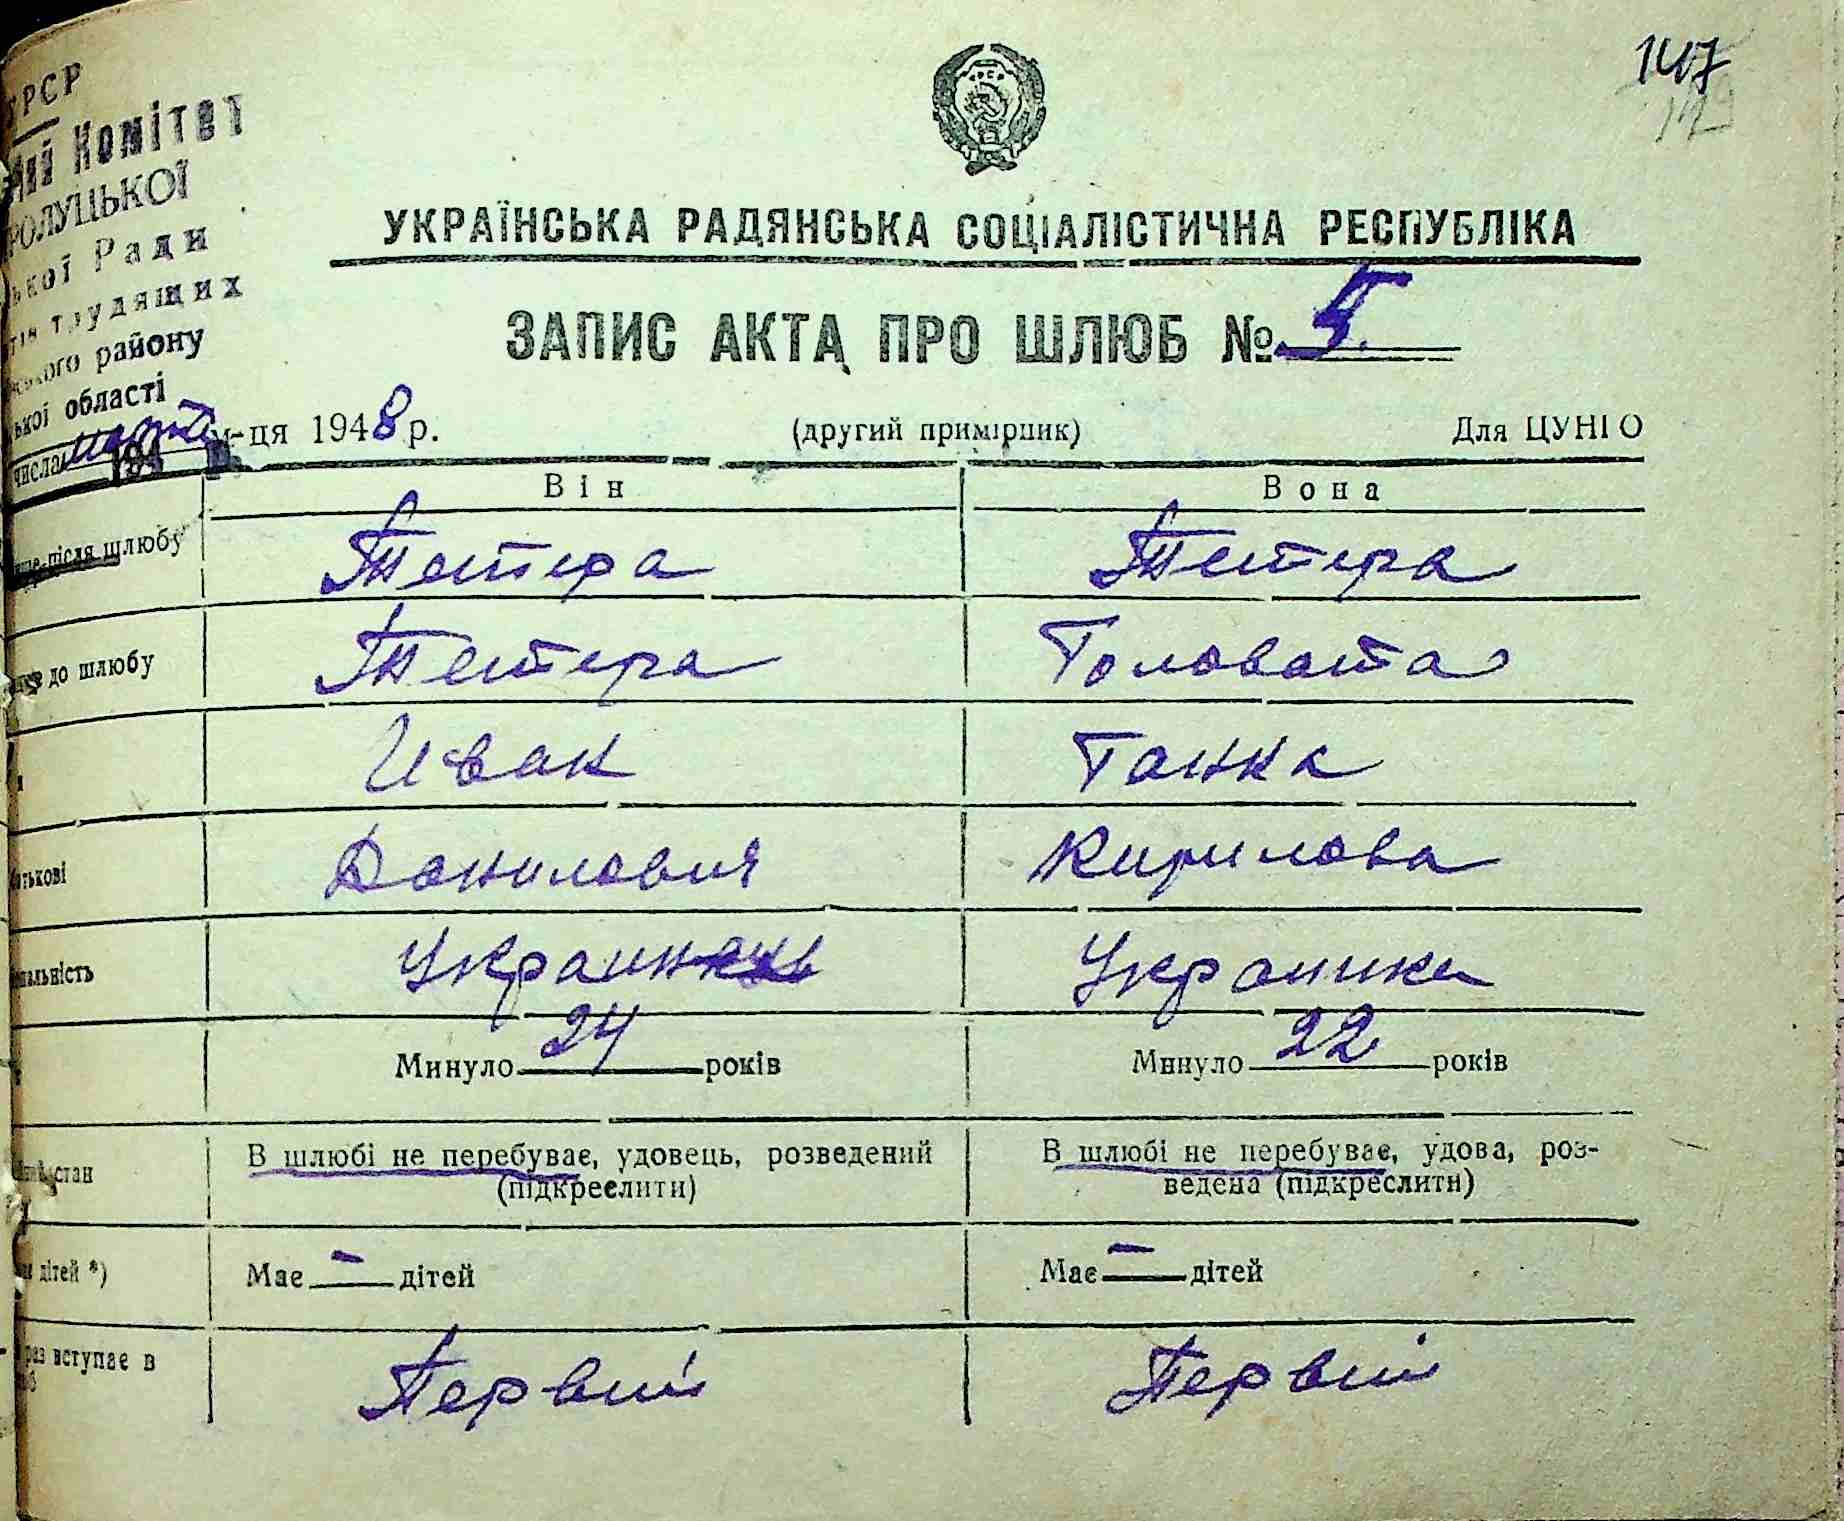 147
УРСР
Комітет
РОЛУЦЬКОЇ
Ради
трудящих
району
області
УКРАЇНСЬКА РАДЯНСЬКА СОЦІАЛІСТИЧНА РЕСПУБЛІКА
ЗАПИС АКТА ПРО ШЛЮБ № 5.
числа марта м-ця 1948 р. (другий примірник) Для ЦУНГО
194
Він Вона
після шлюбу Тетера Тетера
до шлюбу Тетера Головата
Иван Ганна
батькові Данилович Кирилова
національність Украинець Украинка
Минуло 24 років Минуло 22 років
стан В шлюбі не перебуває, удовець, розведений В шлюбі не перебуває, удова, роз-
(підкреслити) ведена (підкреслити)
дітей *) Має — дітей Має — дітей
раз вступає в Первий Первий